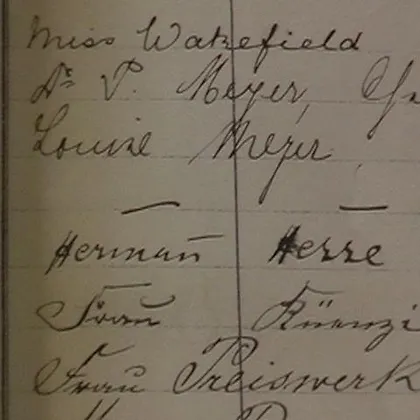 Miss Wakefield
Dr P. Meyer,
Louise Meyer
— —
Hermann Hesse
Frau Küenzi
Frau Preiswerk